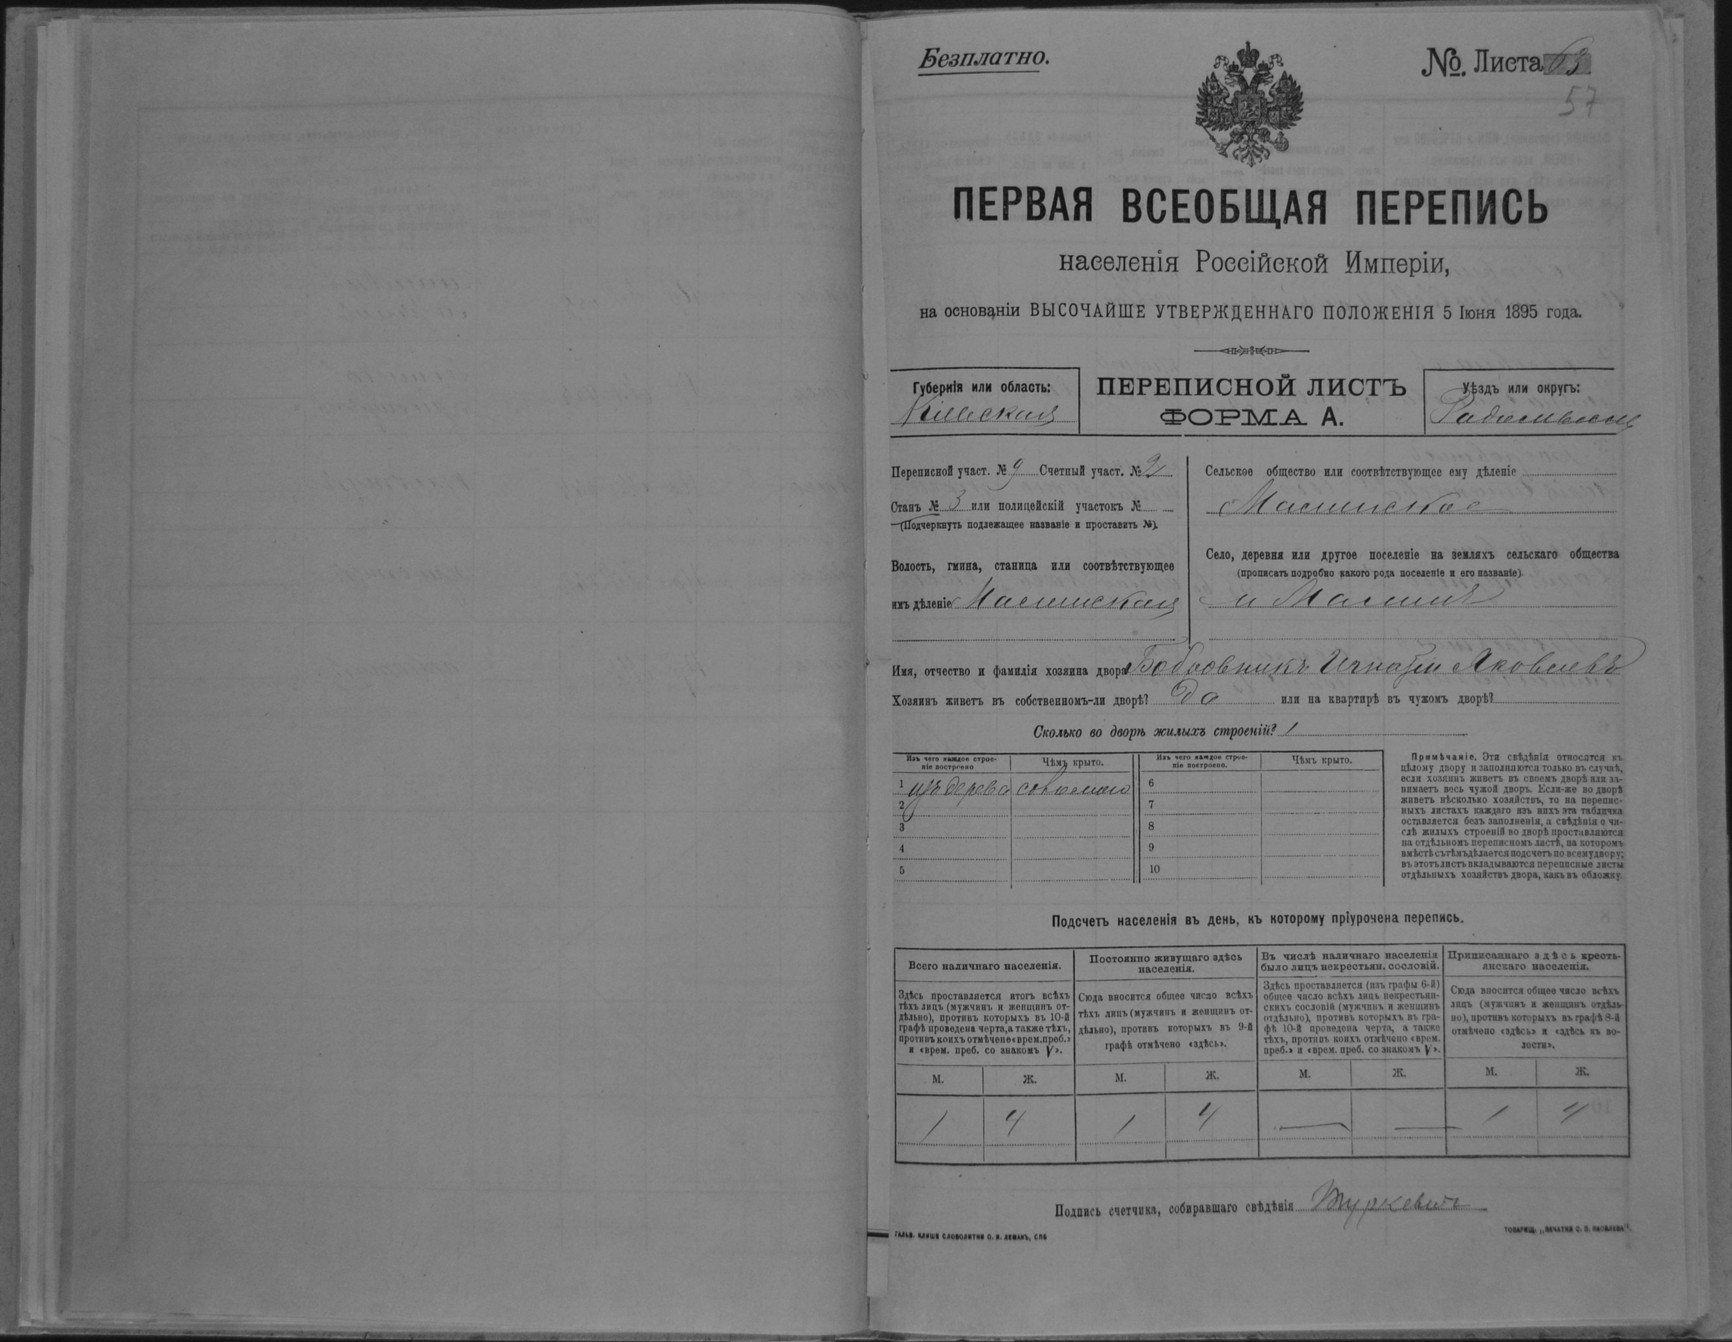 Безплатно.
№ Листа 63
57
ПЕРВАЯ ВСЕОБЩАЯ ПЕРЕПИСЬ
населенія Россійской Имперіи,
на основаніи ВЫСОЧАЙШЕ УТВЕРЖДЕННАГО ПОЛОЖЕНІЯ 5 Іюня 1895 года.
Губернія или область:
Кіевская
ПЕРЕПИСНОЙ ЛИСТЪ
ФОРМА А.
Уѣздъ или округъ:
Радомысльскій
Переписной участ. № 9 Счетный участ. № 2
Станъ № 3 или полицейскій участокъ №
(Подчеркнуть подлежащее названіе и проставить №).
Волость, гмина, станица или соотвѣтствующее
имъ дѣленіе Малинская
Сельское общество или соотвѣтствующее ему дѣленіе
Малинское
Село, деревня или другое поселеніе на земляхъ сельскаго общества
(прописать подробно какого рода поселеніе и его названіе)
м Малинъ
Имя, отчество и фамилія хозяина двора Бобровникъ Игнатій Яковлевъ
Хозяинъ живетъ въ собственномъ-ли дворѣ? Да или на квартирѣ въ чужомъ дворѣ?
Сколько во дворѣ жилыхъ строеній? 1
Изъ чего каждое строеніе построено
Чѣмъ крыто.
Изъ чего каждое строеніе построено.
Чѣмъ крыто.
1 изъ дерева соломою
2
3
4
5
6
7
8
9
10
Примѣчаніе. Эти свѣдѣнія относятся къ
цѣлому двору и заполняются только въ случаѣ,
если хозяинъ живетъ въ своемъ дворѣ или за-
нимаетъ весь чужой дворъ. Если-же во дворѣ
живетъ нѣсколько хозяйствъ, то на перепис-
ныхъ листахъ каждаго изъ нихъ эта табличка
оставляется безъ заполненія, а свѣдѣнія о чи-
слѣ жилыхъ строеній во дворѣ проставляются
на отдѣльномъ переписномъ листѣ, на которомъ
вмѣстѣ съ тѣмъ дѣлается подсчетъ по всему двору;
въ этотъ листъ вкладываются переписные листы
отдѣльныхъ хозяйствъ двора, какъ въ обложку.
Подсчетъ населенія въ день, къ которому пріурочена перепись.
Всего наличнаго населенія.
Здѣсь проставляется итогъ всѣхъ
тѣхъ лицъ (мужчинъ и женщинъ от-
дѣльно), противъ которыхъ въ 10-й
графѣ проведена черта, а также тѣхъ,
противъ коихъ отмѣчено «врем. преб.»
и «врем. преб. со знакомъ V».
Постоянно живущаго здѣсь
населенія.
Сюда вносится общее число всѣхъ
тѣхъ лицъ (мужчинъ и женщинъ от-
дѣльно), противъ которыхъ въ 9-й
графѣ отмѣчено «здѣсь».
Въ числѣ наличнаго населенія
было лицъ некрестьян. сословій.
Здѣсь проставляется (изъ графы 6-й)
общее число всѣхъ лицъ некрестьян-
скихъ сословій (мужчинъ и женщинъ
отдѣльно), противъ которыхъ въ гра-
фѣ 10-й проведена черта, а также
тѣхъ, противъ коихъ отмѣчено «врем.
преб.» и «врем. преб. со знакомъ V».
Приписаннаго здѣсь кресть-
янскаго населенія.
Сюда вносится общее число всѣхъ
лицъ (мужчинъ и женщинъ отдѣль-
но), противъ которыхъ въ графѣ 8-й
отмѣчено «здѣсь» и «здѣсь въ во-
лости».
М. Ж. М. Ж. М. Ж. М. Ж.
1 4 1 4 — — 1 4
Подпись счетчика, собиравшаго свѣдѣнія Туркевичъ
ГАЛЬВ. КЛИШЕ СЛОВОЛИТНИ О. И. ЛЕМАНЪ, СПБ
ТОВАРИЩ. „ПЕЧАТНЯ С. П. ЯКОВЛЕВА".